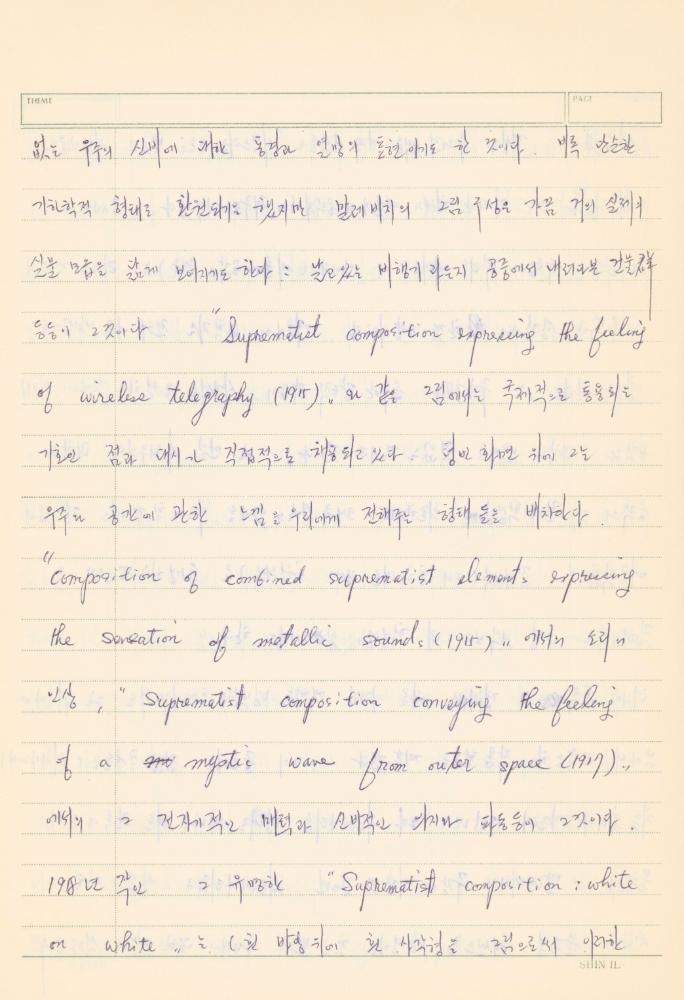 THEME
PAGE
없는 우주의 신비에 대한 동경과 열망의 표현이기도 한 것이다. 비록 단순한
기하학적 형태로 환원되기는 했지만 말레비치의 그림 구성은 가끔 거의 실제의
실물 모습을 닮게 보여지기도 한다 : 날고 있는 비행기라든지 공중에서 내려다본 건물群
등등이 그것이다 "Suprematist composition expressing the feeling
of wireless telegraphy (1915)" 와 같은 그림에서는 국제적으로 통용되는
기호인 점과 대시가 직접적으로 차용되고 있다. 텅빈 화면 위에 그는
우주의 공간에 관한 느낌을 우리에게 전해주는 형태들을 배치한다.
"composition of combined suprematist elements expressing
the sensation of metallic sounds (1915)" 에서의 소리의
인상, "Suprematist composition conveying the feeling
of a mystic wave from outer space (1917)"
에서의 그 전자기적인 매력과 신비적인 의지와 파동등이 그것이다.
1918년 작인 그 유명한 "Suprematist composition : white
on white" 는 (흰 바탕위에 흰 사각형을 그림으로써 이러한
SHIN IL